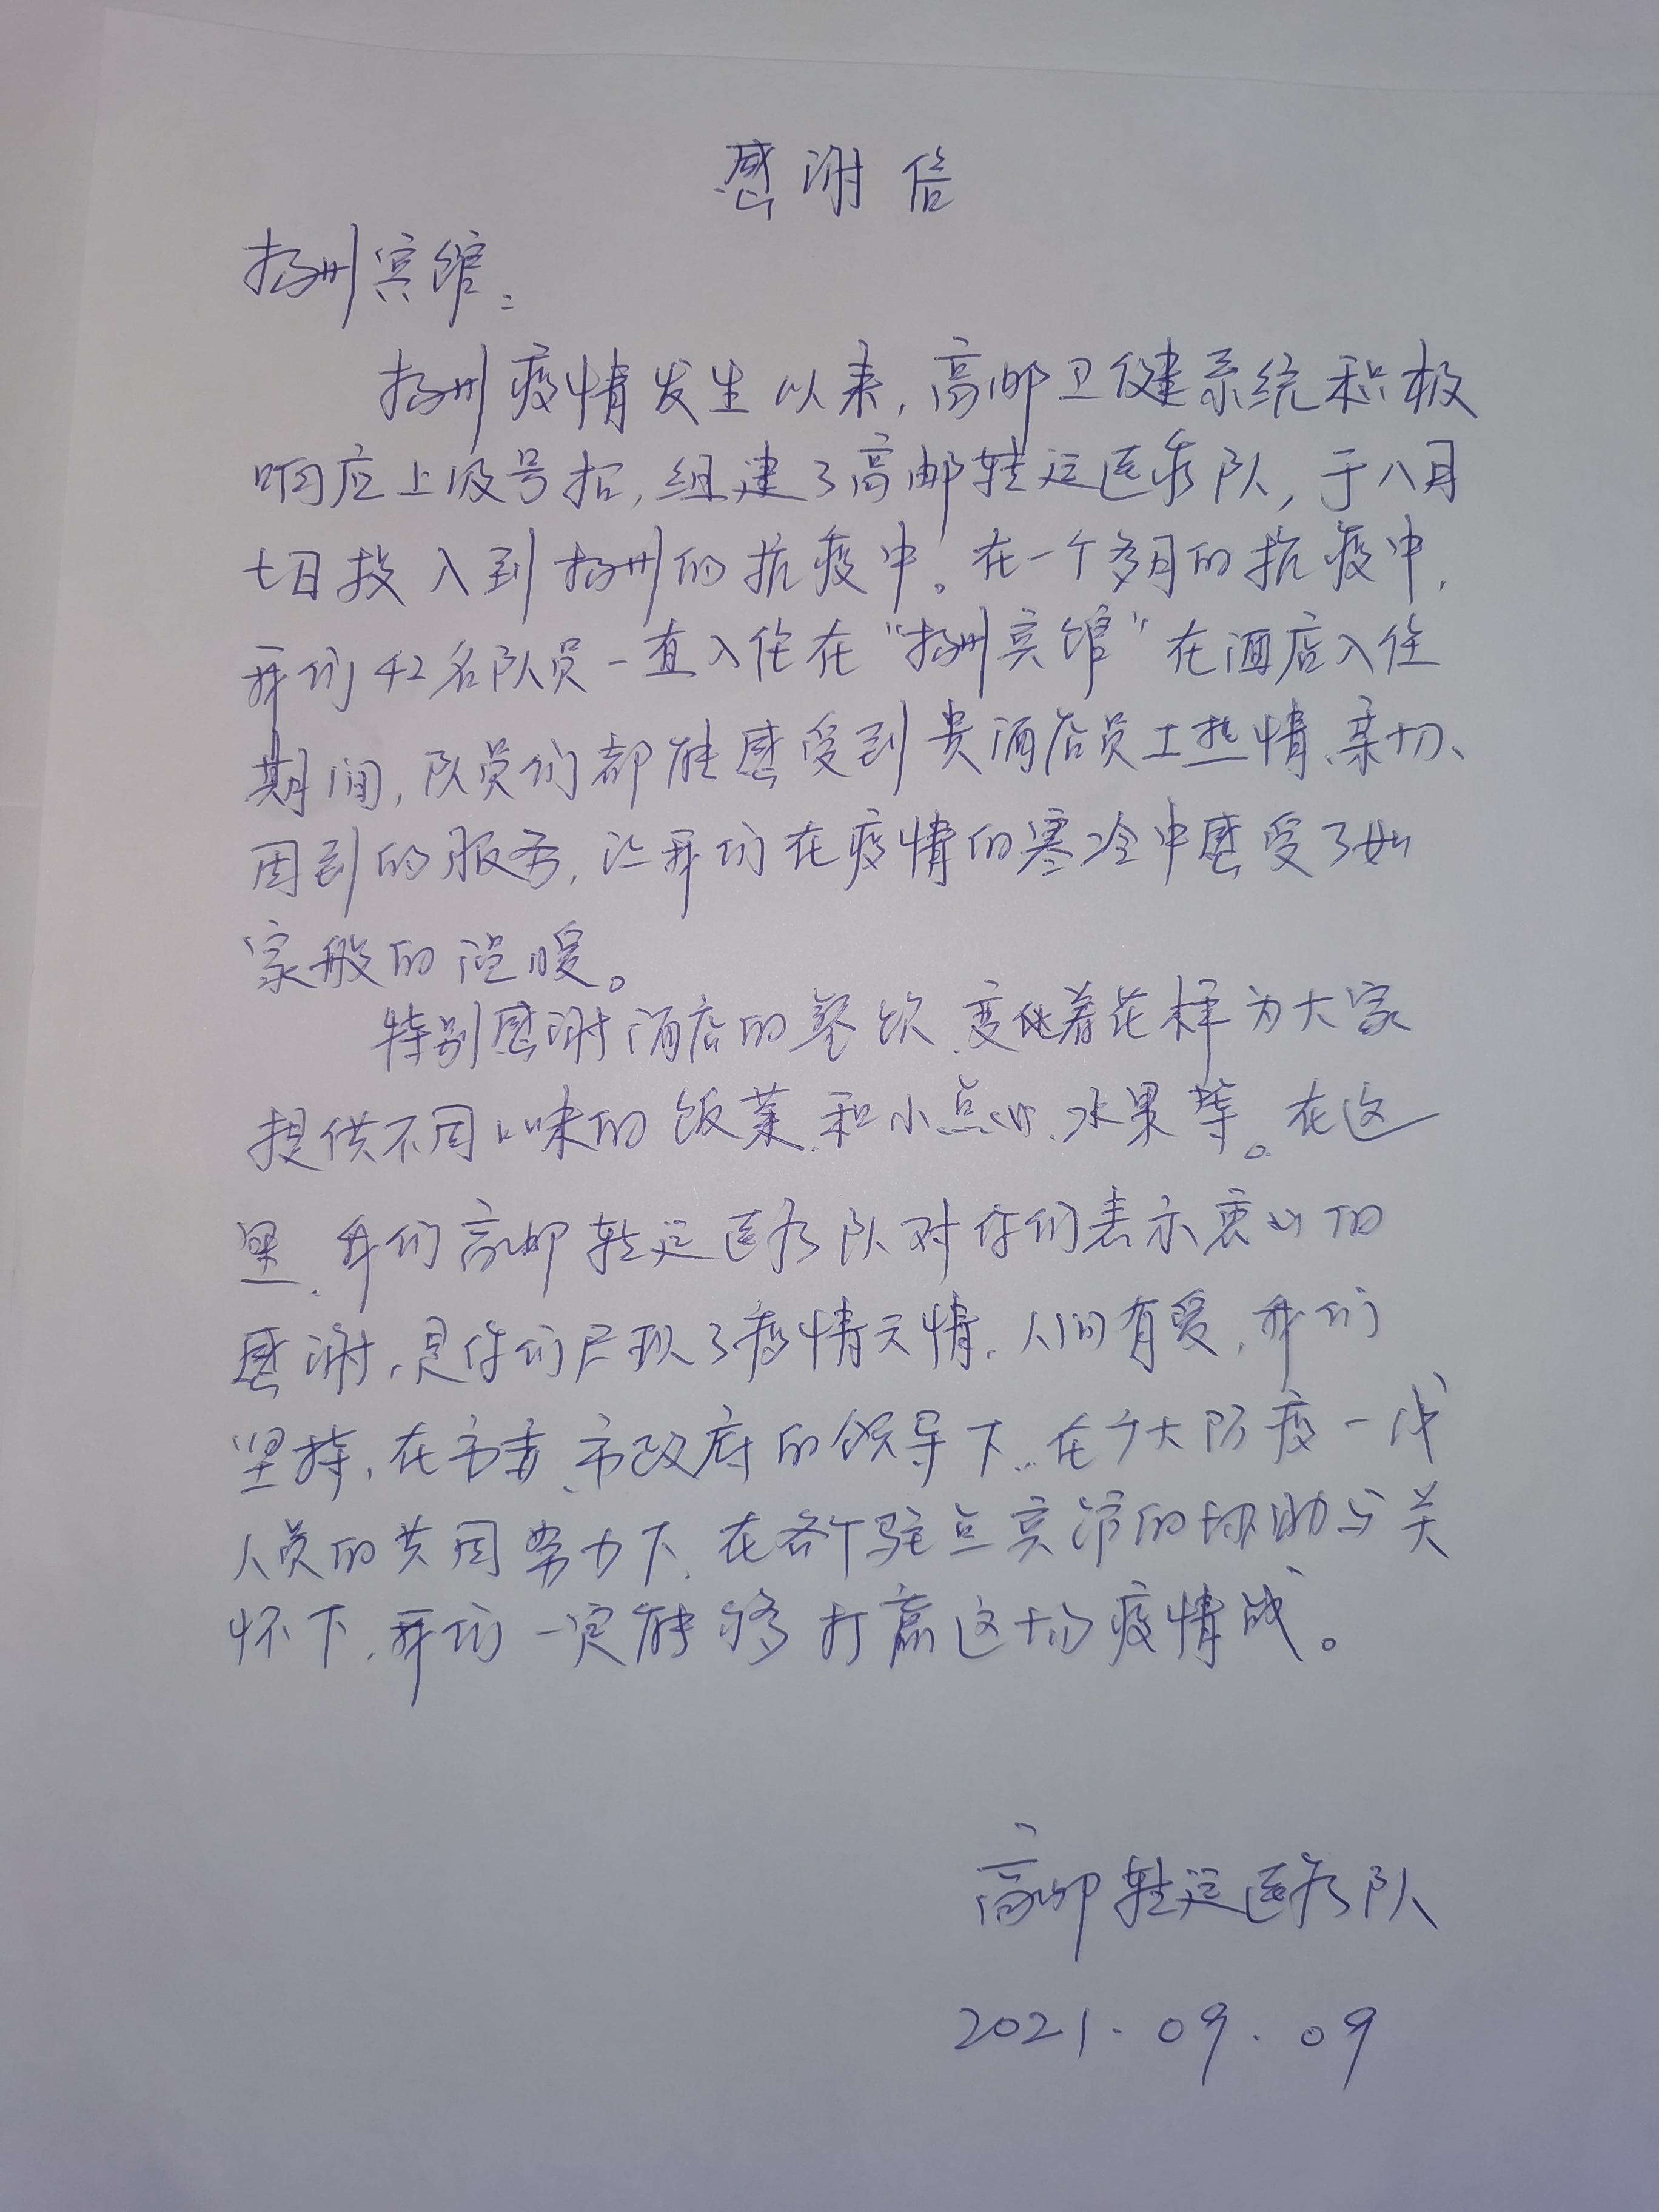 感谢信
扬州宾馆：
扬州疫情发生以来，高邮卫健系统积极
响应上级号招，组建了高邮转运医务队，于八月
七日投入到扬州的抗疫中。在一个多月的抗疫中，
我们42名队员一直入住在“扬州宾馆”在酒店入住
期间，队员们都能感受到贵酒店员工热情、亲切、
周到的服务，让我们在疫情的寒冷中感受了如
家般的温暖。
特别感谢酒店的餐饮，变化着花样为大家
提供不同口味的饭菜、和小点心、水果等。在这
里，我们高邮转运医疗队对你们表示衷心的
感谢，是你们展现了疫情无情，人间有爱，我们
坚持，在市委、市政府的领导下，在广大防疫一线
人员的共同努力下，在各个驻点宾馆的协助与关
怀下，我们一定能够打赢这场疫情战。
高邮转运医疗队
2021.09.09